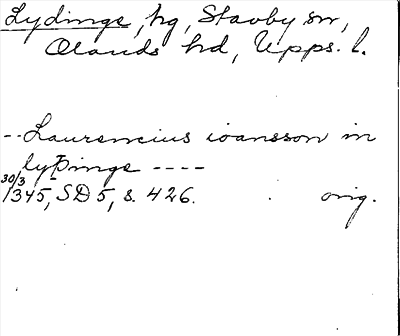 Lydinge, hg, Stavby sn,
Olands hd, Upps. l.
-- Laurencius ioansson in
lyþinge ----
30/3 1345, SD 5, s. 426. orig.